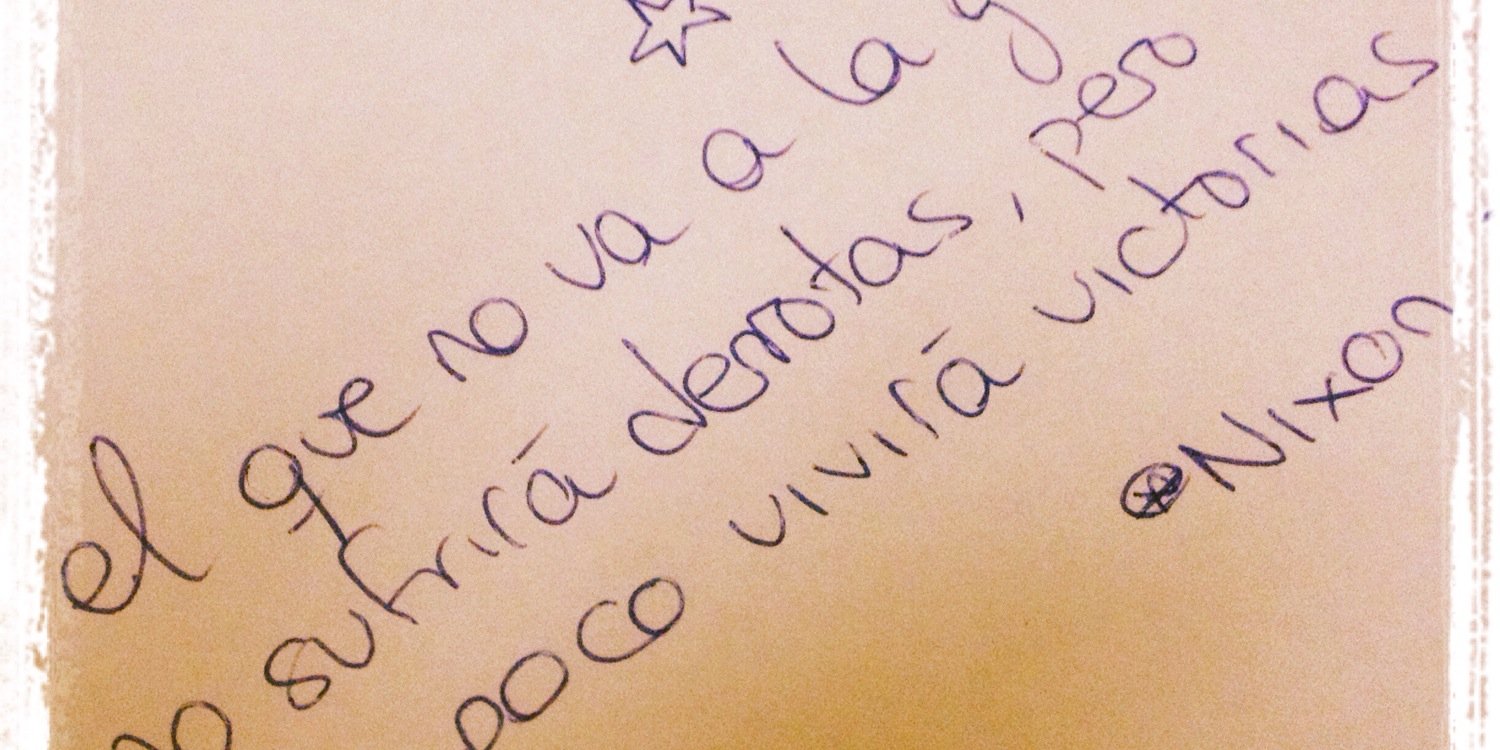 el que no va a la g
no sufrirá derrotas, pero
poco vivirá victorias
Nixon